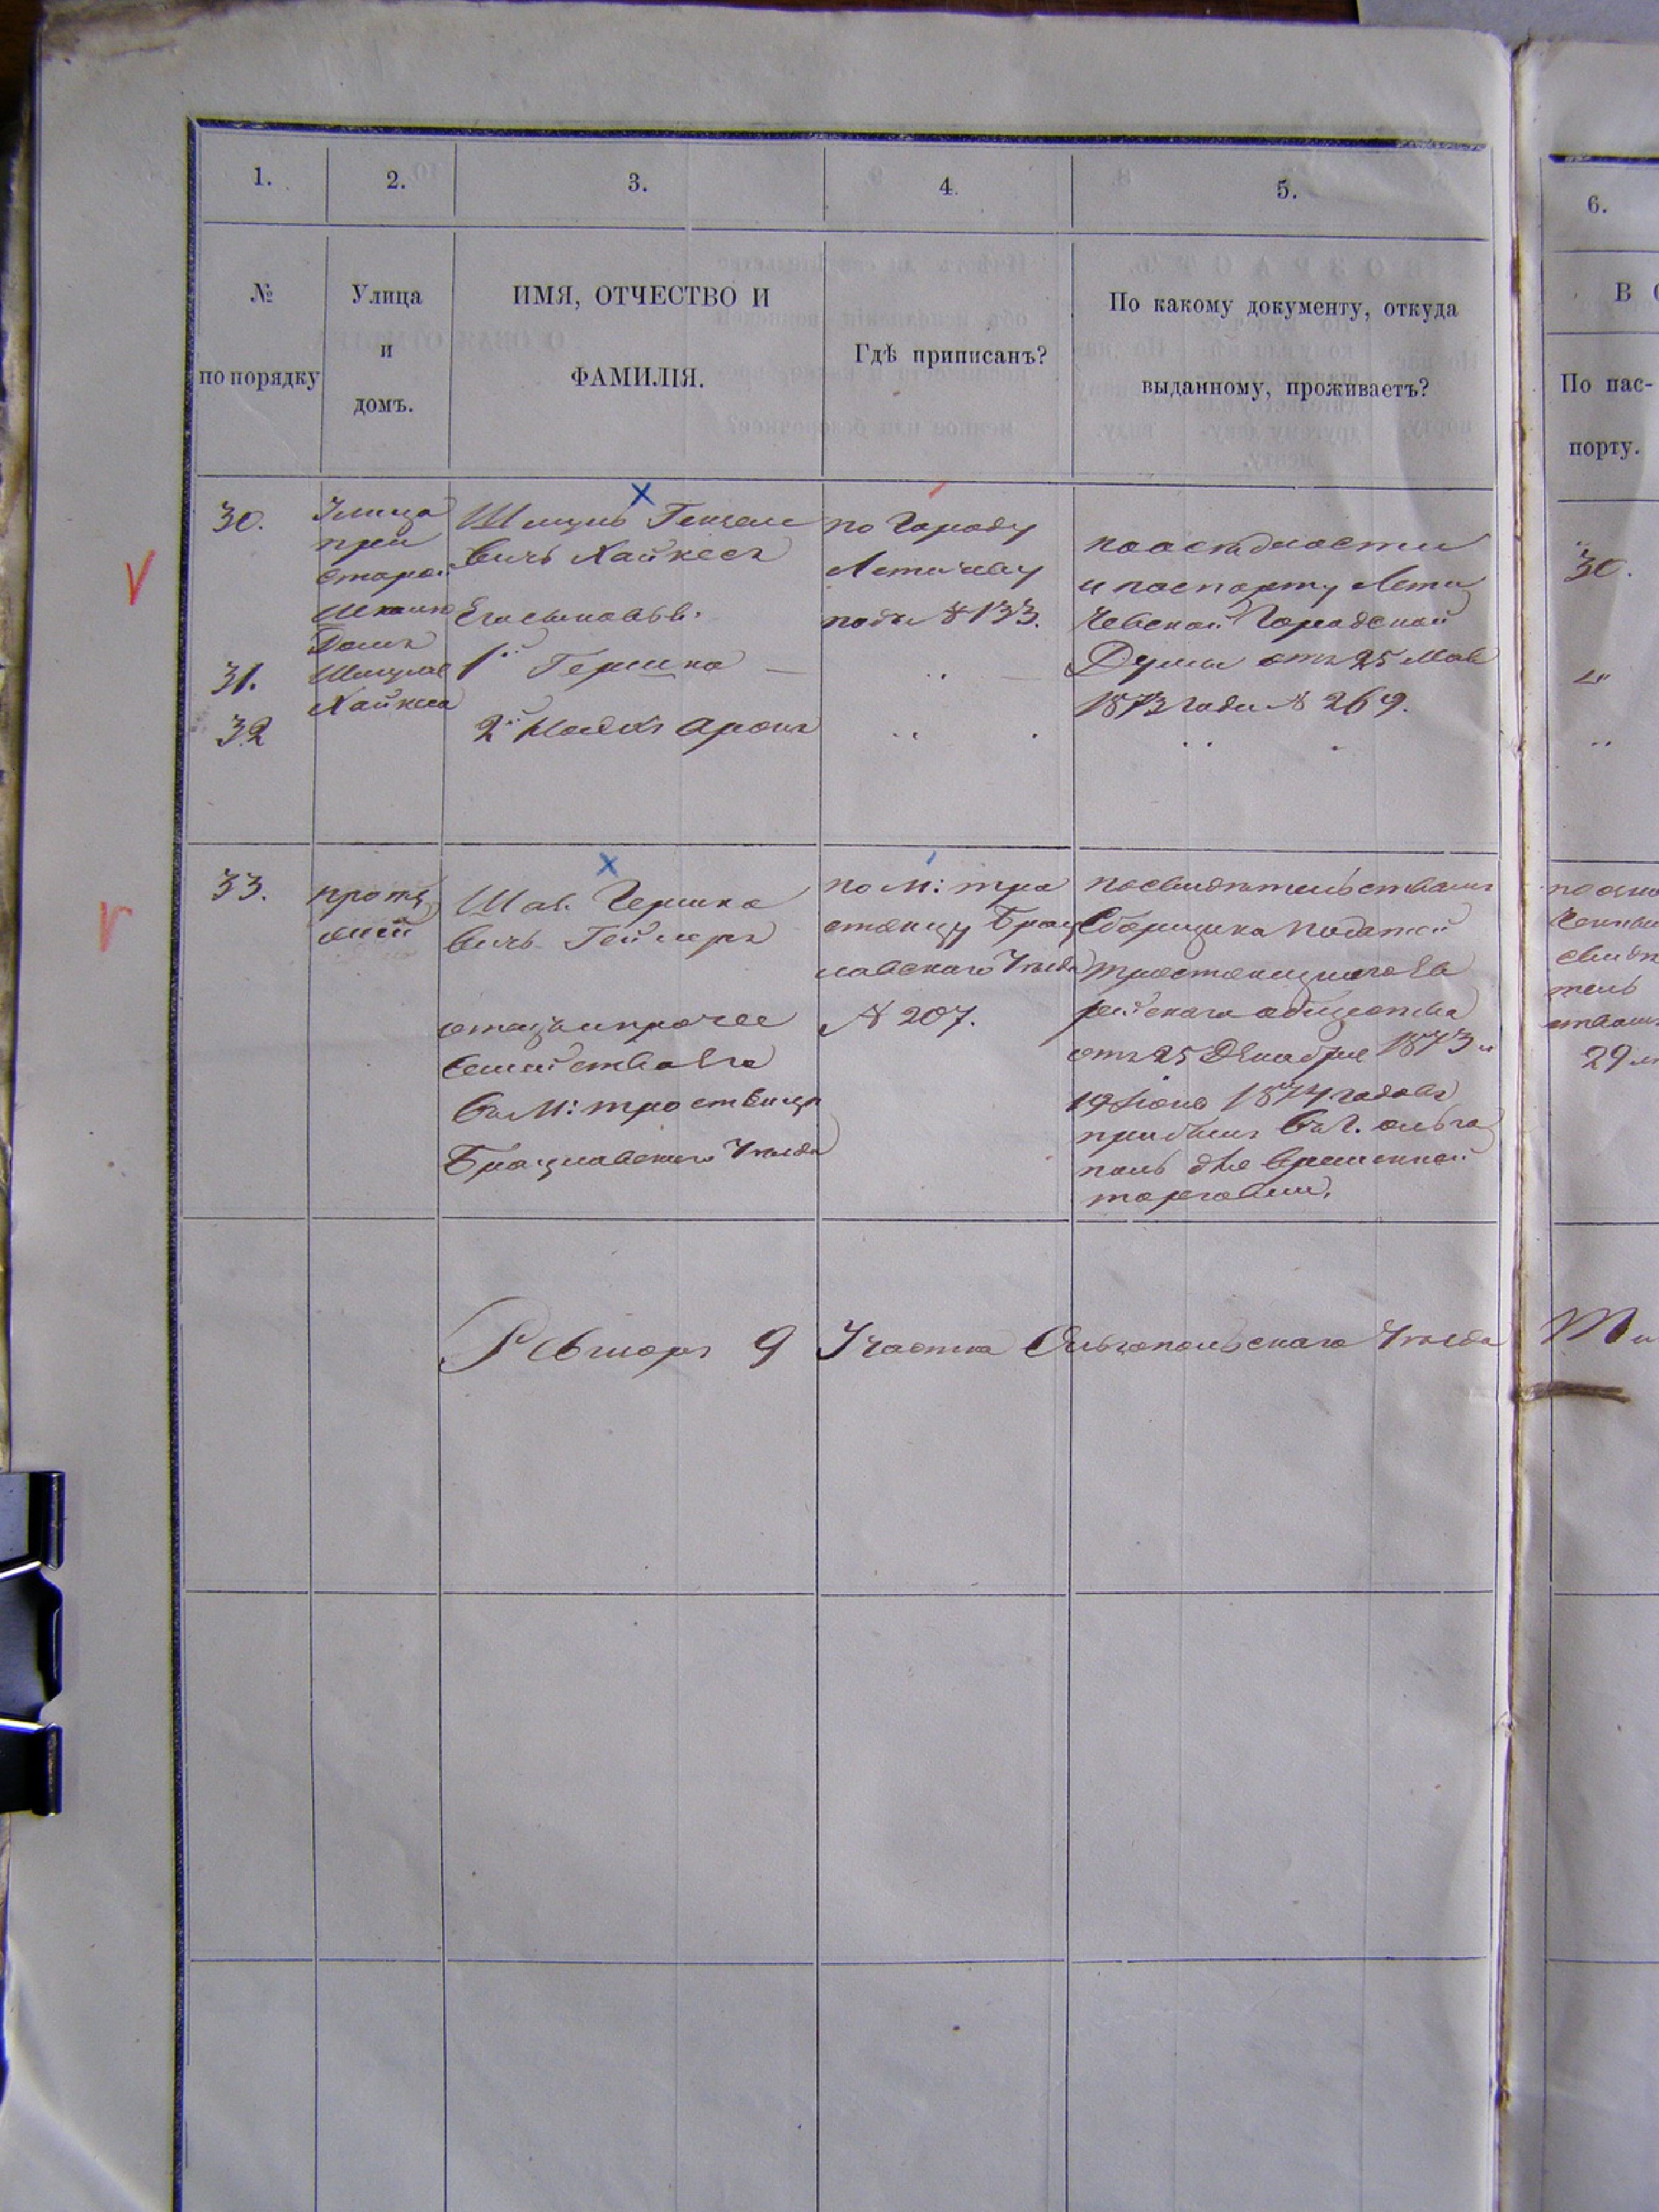 1. 2. 3. 4. 5. 6.
№
по порядку
Улица
и
домъ.
ИМЯ, ОТЧЕСТВО И
ФАМИЛІЯ.
Гдѣ приписанъ?
По какому документу, откуда
выданному, проживаетъ?
По пас-
порту.
30.
Улица
при
старой
Домъ
Шмуля
Хайкеса
Шмуль Гензеле
вичъ Хайкесъ
Его сыновья.
по Городу
Летичеву
подъ № 133.
по осѣдлости
и паспорту Лети
чевской Городской
Думы отъ 25 Мая
1873 года № 269.
30.
31.
1й Гершко — ..
32
2й Иосъ Аронъ .. .
.. .
33.
Шая Гершко
вичъ Геймеръ
отецъ и прочее
Семейство Его
въ М: тростянцѣ
Брацлавскаго Уѣзда
по М: тро
стянцу Брац
лавскаго Уѣзда
№ 207.
по свидѣтельствамъ
Сборщика податей
тростянецкаго Ев
рейскаго общества
отъ 25 Декабря 1873 и
19 Июня 1874 годовъ
прибылъ въ г. Ольго
поль для временной
торговли.
29
Ревизоръ 9 Участка Ольгопольскаго Уѣзда